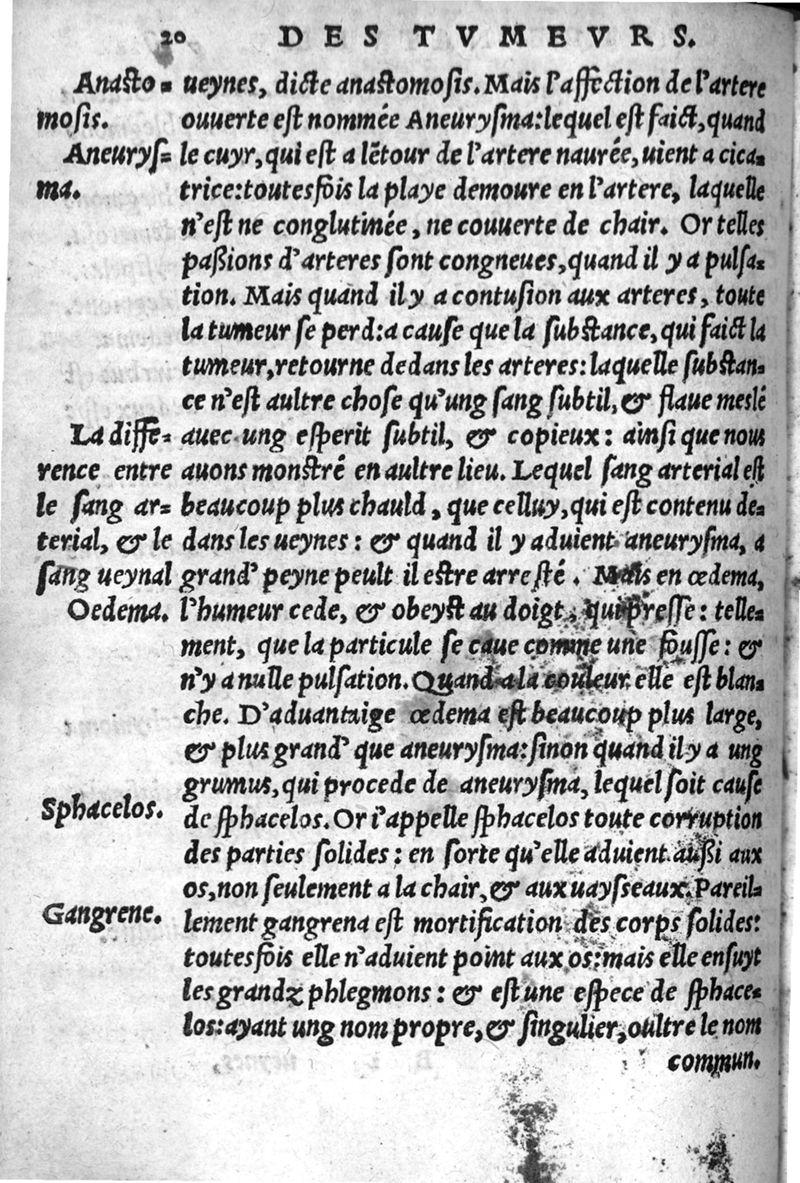 20 DES TVMEVRS.
Anasto- ueynes, dicte anastomosis. Mais l'affection de l'artere
mosis. ouuerte est nommée Aneurysma: lequel est faict, quand
Aneurys- le cuyr, qui est a lẽtour de l'artere naurée, uient a cica-
ma. trice: toutesfois la playe demoure en l'artere, laquelle
n'est ne conglutinée, ne couuerte de chair. Or telles
paßions d'arteres sont congneues, quand il y a pulsa-
tion. Mais quand il y a contusion aux arteres, toute
la tumeur se perd: a cause que la substance, qui faict la
tumeur, retourne dedans les arteres: laquelle substan-
ce n'est aultre chose qu'ung sang subtil, & flaue meslé
La diffe- auec ung esperit subtil, & copieux: ainsi que nous
rence entre auons monstré en aultre lieu. Lequel sang arterial est
le sang ar- beaucoup plus chauld, que celluy, qui est contenu de-
terial, & le dans les ueynes: & quand il y aduient aneurysma, a
sang ueynal grand' peyne peult il estre arresté. Mais en œdema,
Oedema. l'humeur cede, & obeyst au doigt, qui presse: telle-
ment, que la particule se caue comme une fousse: &
n'y a nulle pulsation. Quand a la couleur elle est blan-
che. D'aduantaige œdema est beaucoup plus large,
& plus grand' que aneurysma: sinon quand il y a ung
grumus, qui procede de aneurysma, lequel soit cause
Sphacelos. de sphacelos. Or i'appelle sphacelos toute corruption
des parties solides: en sorte qu'elle aduient außi aux
os, non seulement a la chair, & aux uaysseaux. Pareil-
Gangrene. lement gangrena est mortification des corps solides:
toutesfois elle n'aduient point aux os: mais elle ensuyt
les grandz phlegmons: & est une espece de sphace-
los: ayant ung nom propre, & singulier, oultre le nom
commun.